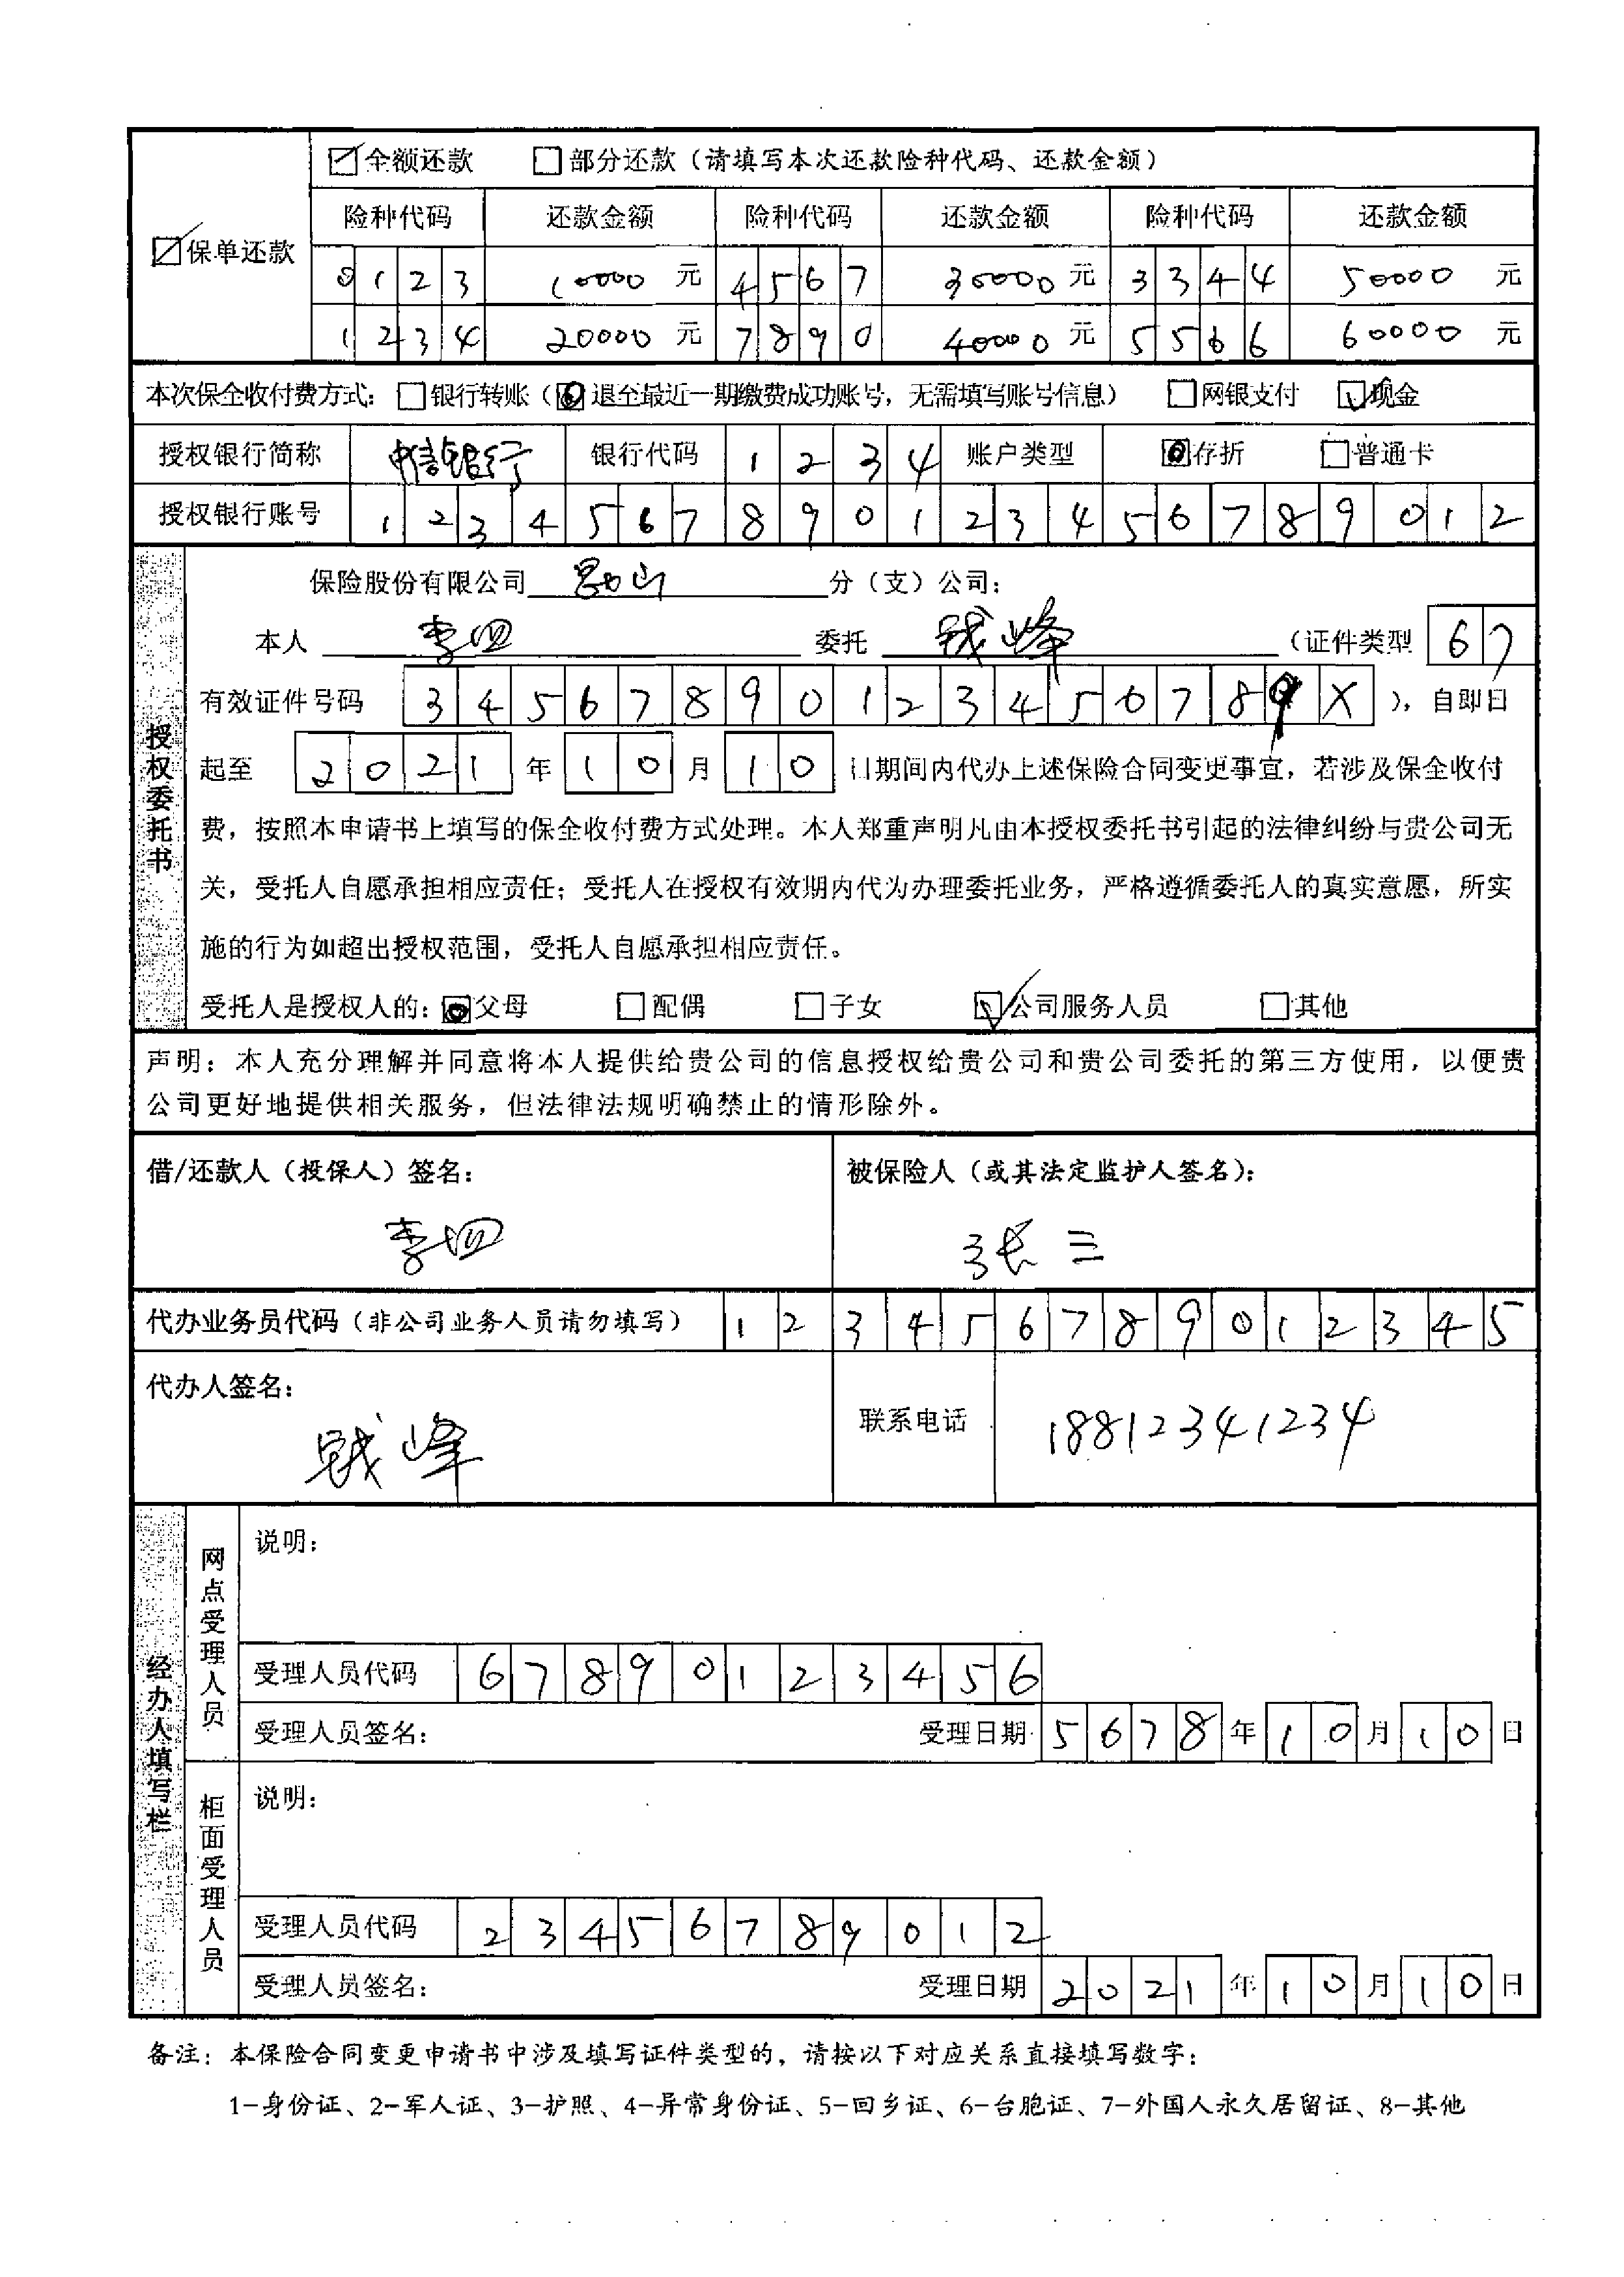 ☑全额还款 ☐部分还款（请填写本次还款险种代码、还款金额）
☑保单还款
险种代码 还款金额 险种代码 还款金额 险种代码 还款金额
0123 10000 元 4567 30000 元 3344 50000 元
1234 20000 元 7890 40000 元 5566 60000 元
本次保全收付费方式：☐银行转账（退至最近一期缴费成功账号，无需填写账号信息） ☐网银支付 ☑现金
授权银行简称 中信银行 银行代码 1234 账户类型 存折 ☐普通卡
授权银行账号 1234567890123456789012
授权委托书
保险股份有限公司 昆山 分（支）公司：
本人 李四 委托 钱峰 （证件类型 67
有效证件号码 34567890123456789X ），自即日
起至 2021 年 10 月 10 日期间内代办上述保险合同变更事宜，若涉及保全收付
费，按照本申请书上填写的保全收付费方式处理。本人郑重声明凡由本授权委托书引起的法律纠纷与贵公司无
关，受托人自愿承担相应责任；受托人在授权有效期内代为办理委托业务，严格遵循委托人的真实意愿，所实
施的行为如超出授权范围，受托人自愿承担相应责任。
受托人是授权人的：父母 ☐配偶 ☐子女 ☑公司服务人员 ☐其他
声明：本人充分理解并同意将本人提供给贵公司的信息授权给贵公司和贵公司委托的第三方使用，以便贵
公司更好地提供相关服务，但法律法规明确禁止的情形除外。
借/还款人（投保人）签名： 被保险人（或其法定监护人签名）：
李四 张三
代办业务员代码（非公司业务人员请勿填写） 123456789012345
代办人签名：
钱峰 联系电话 18812341234
经办人填写栏
网点受理人员
说明：
受理人员代码 67890123456
受理人员签名： 受理日期 5678 年 10 月 10 日
柜面受理人员
说明：
受理人员代码 23456789012
受理人员签名： 受理日期 2021 年 10 月 10 日
备注：本保险合同变更申请书中涉及填写证件类型的，请按以下对应关系直接填写数字：
1-身份证、2-军人证、3-护照、4-异常身份证、5-回乡证、6-台胞证、7-外国人永久居留证、8-其他